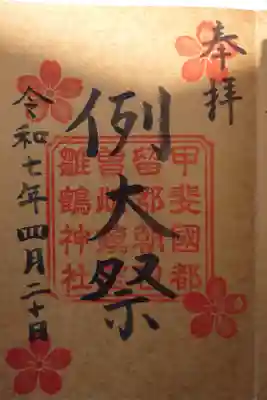 奉拝
例大祭
甲斐國都
留郡朝日
曽雌鎮座
雛鶴神社
令和七年四月二十日